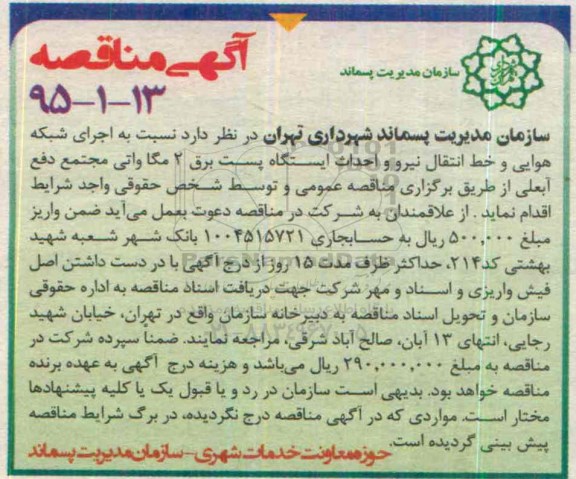 سازمان مدیریت پسماند
آگهی مناقصه
۹۵-۱-۱۳
سازمان مدیریت پسماند شهرداری تهران در نظر دارد نسبت به اجرای شبکه
هوایی و خط انتقال نیرو و احداث ایستگاه پست برق ۲ مگا واتی مجتمع دفع
آبعلی از طریق برگزاری مناقصه عمومی و توسط شخص حقوقی واجد شرایط
اقدام نماید. از علاقمندان به شرکت در مناقصه دعوت بعمل می‌آید ضمن واریز
مبلغ ۵۰۰,۰۰۰ ریال به حسابجاری ۱۰۰۴۵۱۵۷۲۱ بانک شهر شعبه شهید
بهشتی کد۲۱۴، حداکثر ظرف مدت ۱۵ روز از درج آگهی با در دست داشتن اصل
فیش واریزی و اسناد و مهر شرکت جهت دریافت اسناد مناقصه به اداره حقوقی
سازمان و تحویل اسناد مناقصه به دبیرخانه سازمان واقع در تهران، خیابان شهید
رجایی، انتهای ۱۳ آبان، صالح آباد شرقی، مراجعه نمایند. ضمناً سپرده شرکت در
مناقصه به مبلغ ۲۹۰,۰۰۰,۰۰۰ ریال می‌باشد و هزینه درج آگهی به عهده برنده
مناقصه خواهد بود. بدیهی است سازمان در رد و یا قبول یک یا کلیه پیشنهادها
مختار است. مواردی که در آگهی مناقصه درج نگردیده، در برگ شرایط مناقصه
پیش بینی گردیده است.
حوزه معاونت خدمات شهری-سازمان مدیریت پسماند